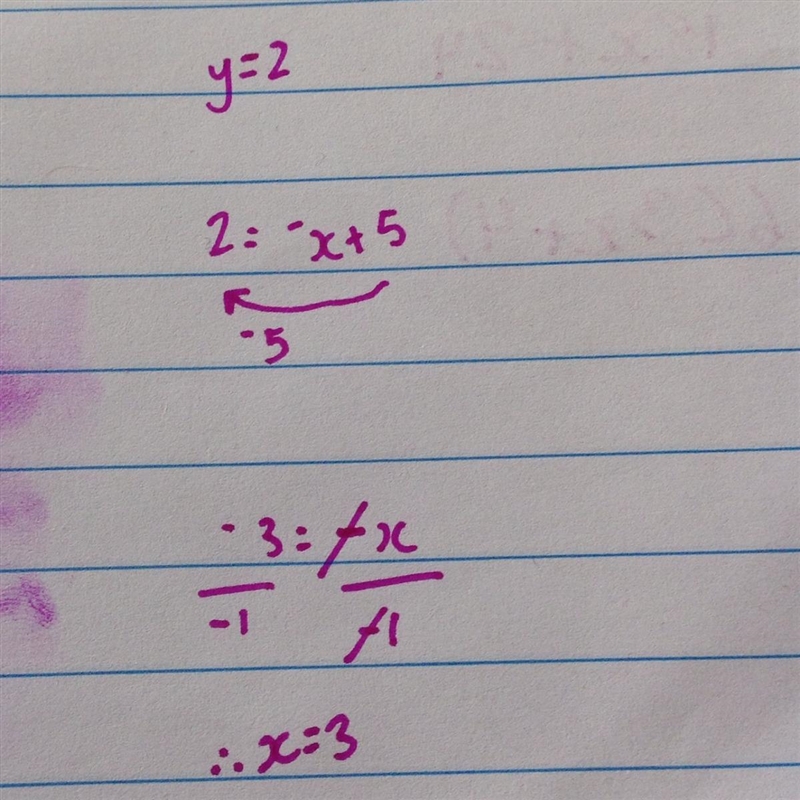 y=2
2=-x+5
-5
-3=-x
-1 -1
∴x=3